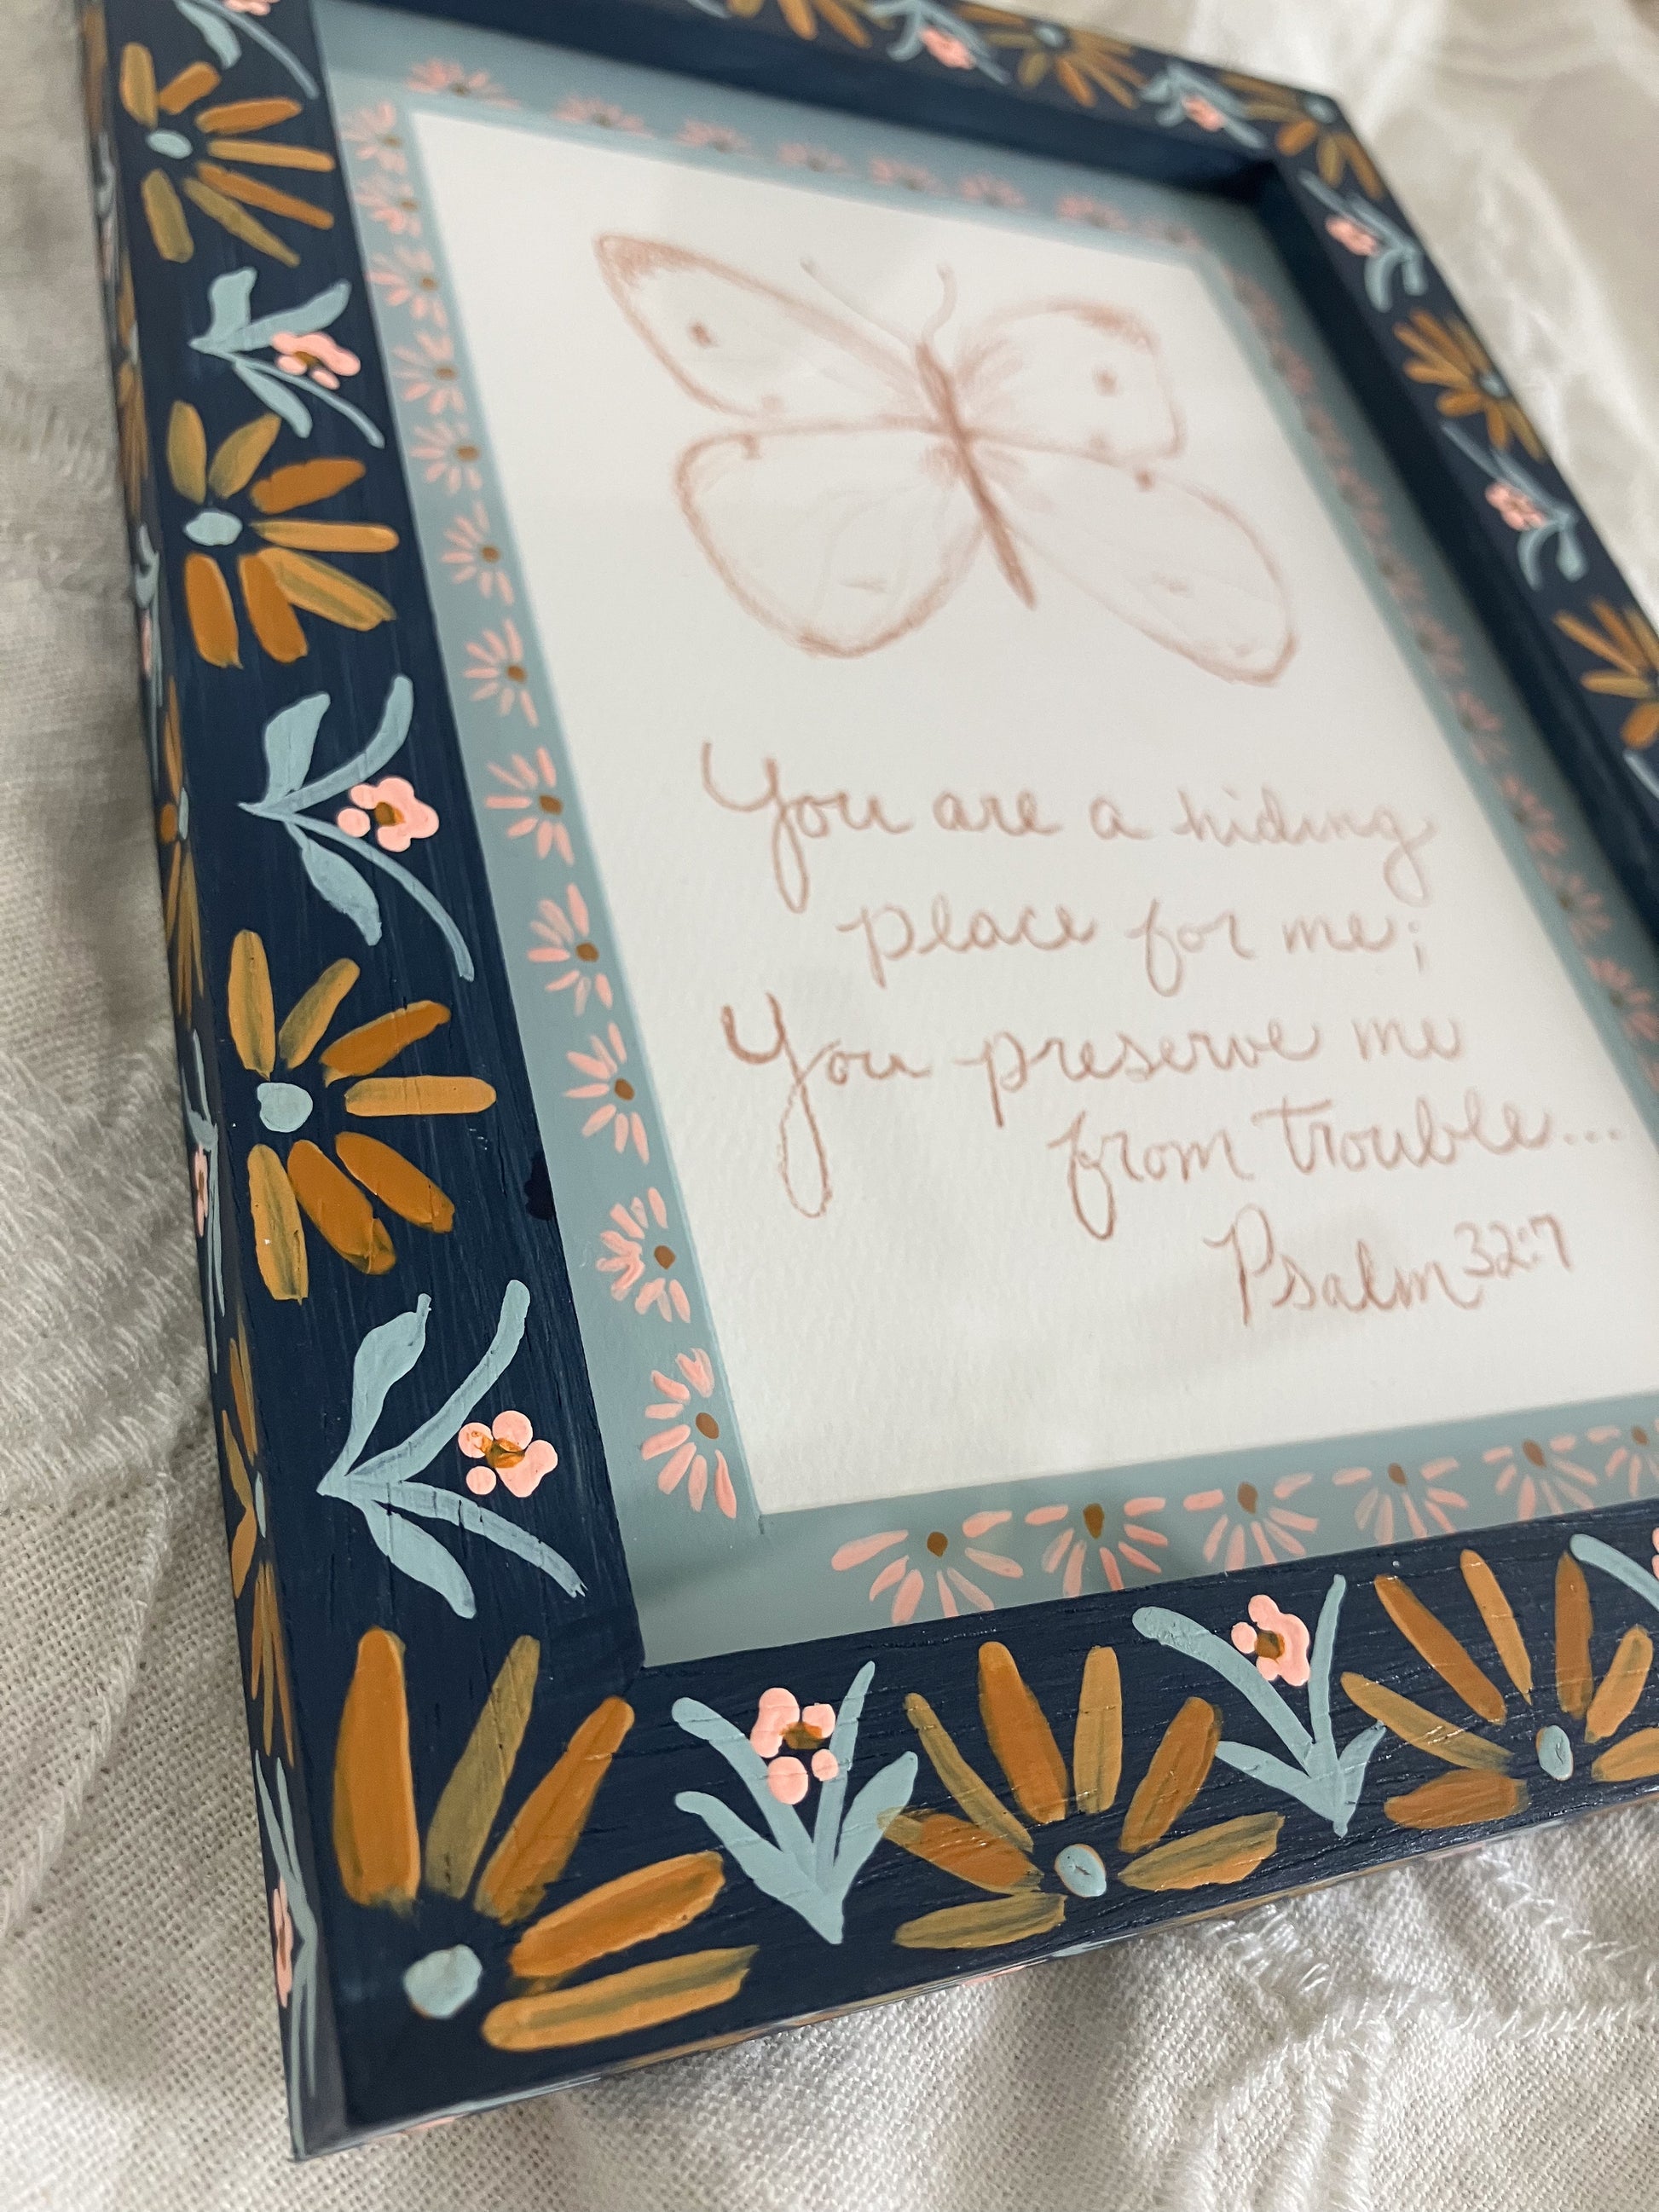 You are a hiding
place for me;
You preserve me
from trouble...
Psalm 32:7